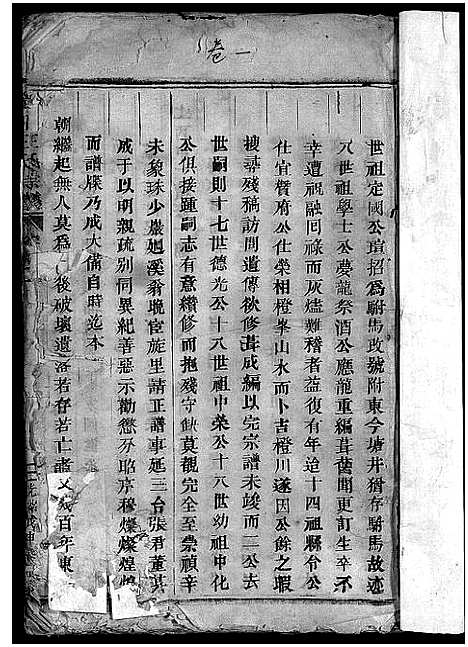 卷一
世祖定國公瓊招為駙馬改號附東今塘井猶存駙馬故迹
八世祖學士公夢龍祭酒公應龍重編葺舊聞更訂生卒不
幸遭祝融回祿而灰燼難稽者益復有年迨十四祖縣令公
仕宜賓府公仕榮相橙峯山水而卜吉橙川遂因公餘之暇
搜尋殘稿訪問遺傳欲修葺成編以完宗譜未竣而二公去
世嗣則十七世德光公十八世祖中榮公十八世幼祖中化
公俱接踵嗣志有意纘修而抱殘守缺莫覩完全至崇禎辛
未象珠少巖廻溪翁晚宦旋里請正譜事延三台張君董其
成于以明親疏別同異紀善惡示勸懲分昭序穆燦燦煌煌
而譜牒乃成大備自時迄本
朝繼起無人莫為 後破壞遺落若存若亡者又幾百年東